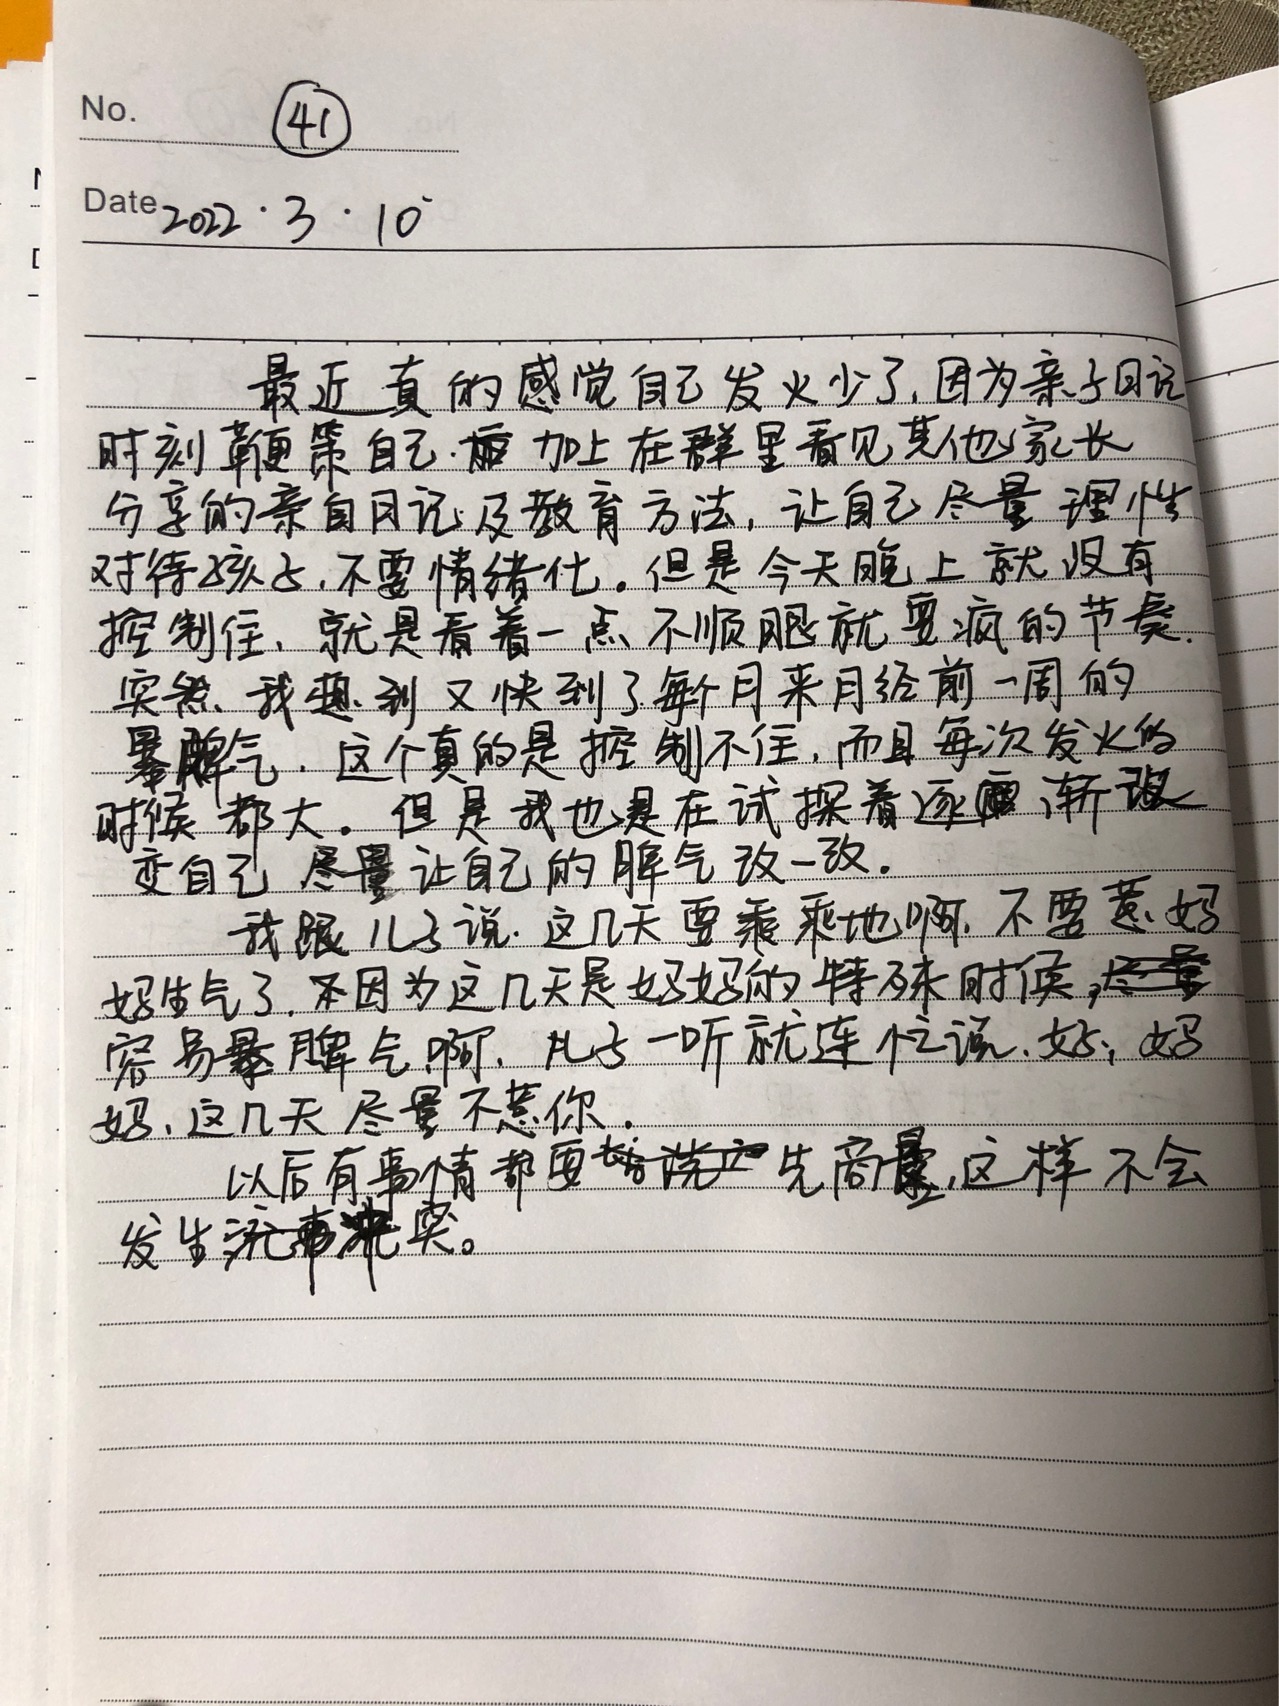 No. 41
Date 2022.3.10
最近真的感觉自己发火少了,因为亲子日记
时刻鞭策自己.加上在群里看见其他家长
分享的亲自日记及教育方法,让自己尽量理性
对待孩子,不要情绪化。但是今天晚上就没有
控制住,就是看着一点不顺眼就要疯的节奏.
突然我想到又快到了每个月来月经前一周的
暴脾气,这个真的是控制不住,而且每次发火的
时候都大。但是我也是在试探着逐渐改
变自己 尽量让自己的脾气改一改。
我跟儿子说.这几天要乘乘地啊,不要惹妈
妈生气了,因为这几天是妈妈的特殊时候,
容易暴脾气啊,儿子一听就连忙说、好,妈
妈,这几天尽量不惹你.
以后有事情都要先商量,这样不会
发生冲突。